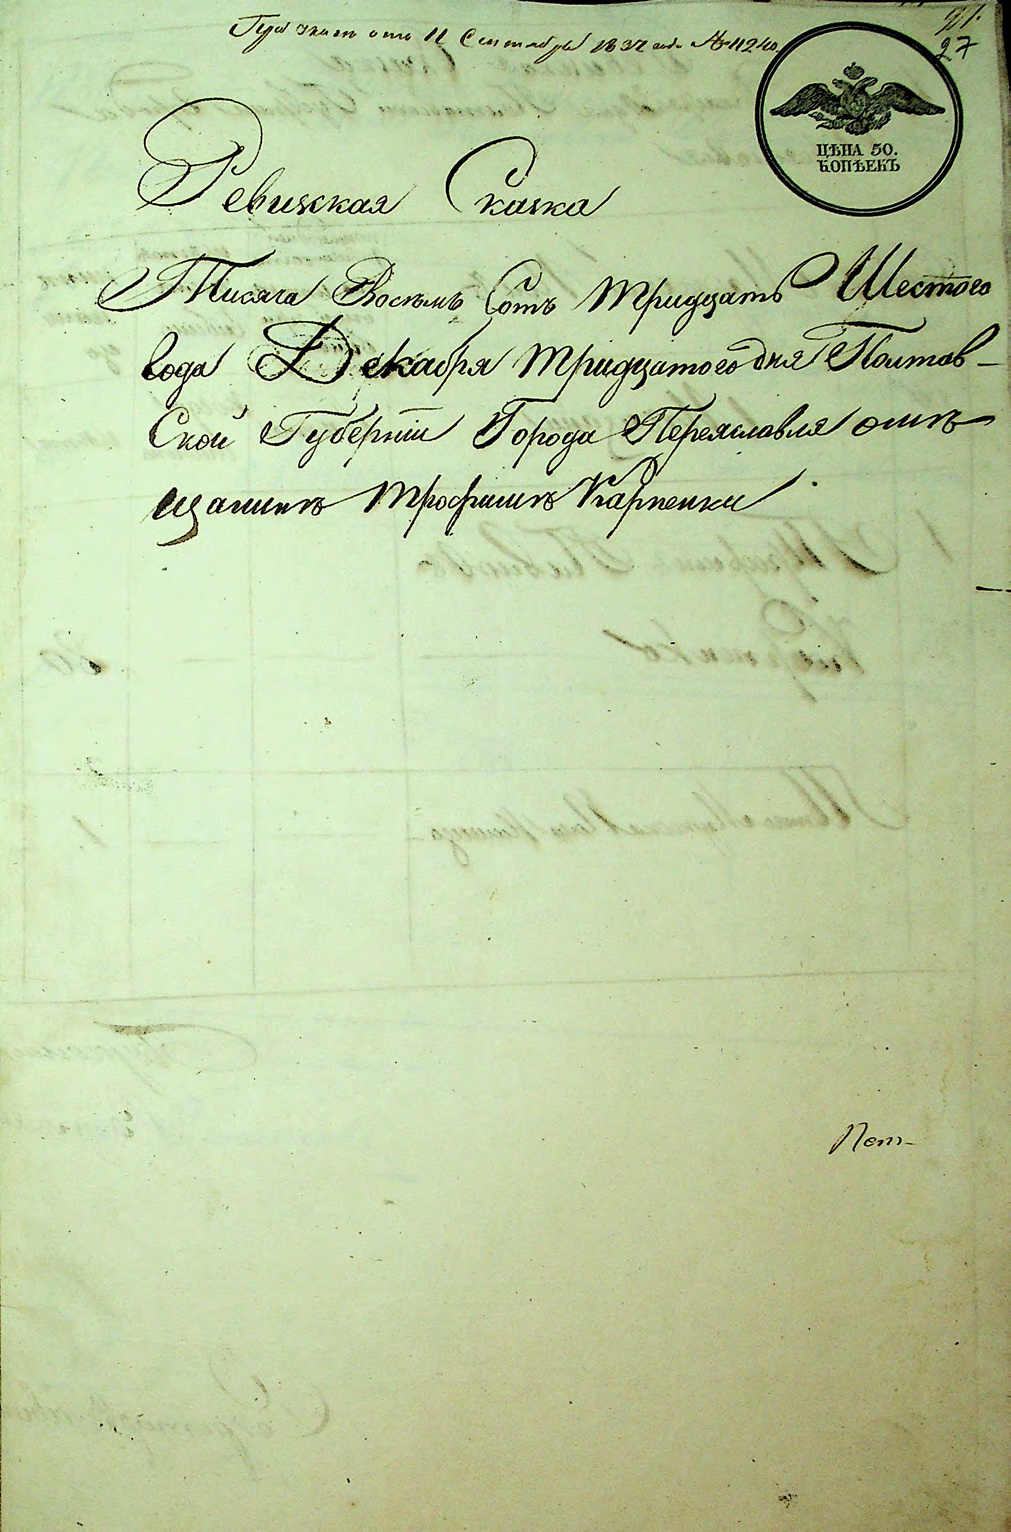 отъ 11 Сентября 1837 года № 11240
27
ЦѢНА 50.
КОПѢЕКЪ
Ревижская Сказка
Тисяча Восемь Сотъ тридцать Шестого
года Декабря тридцатого дня Полтав-
Ской Губернiи Города Переяславля отъ
щанинъ трофимъ Карпенки